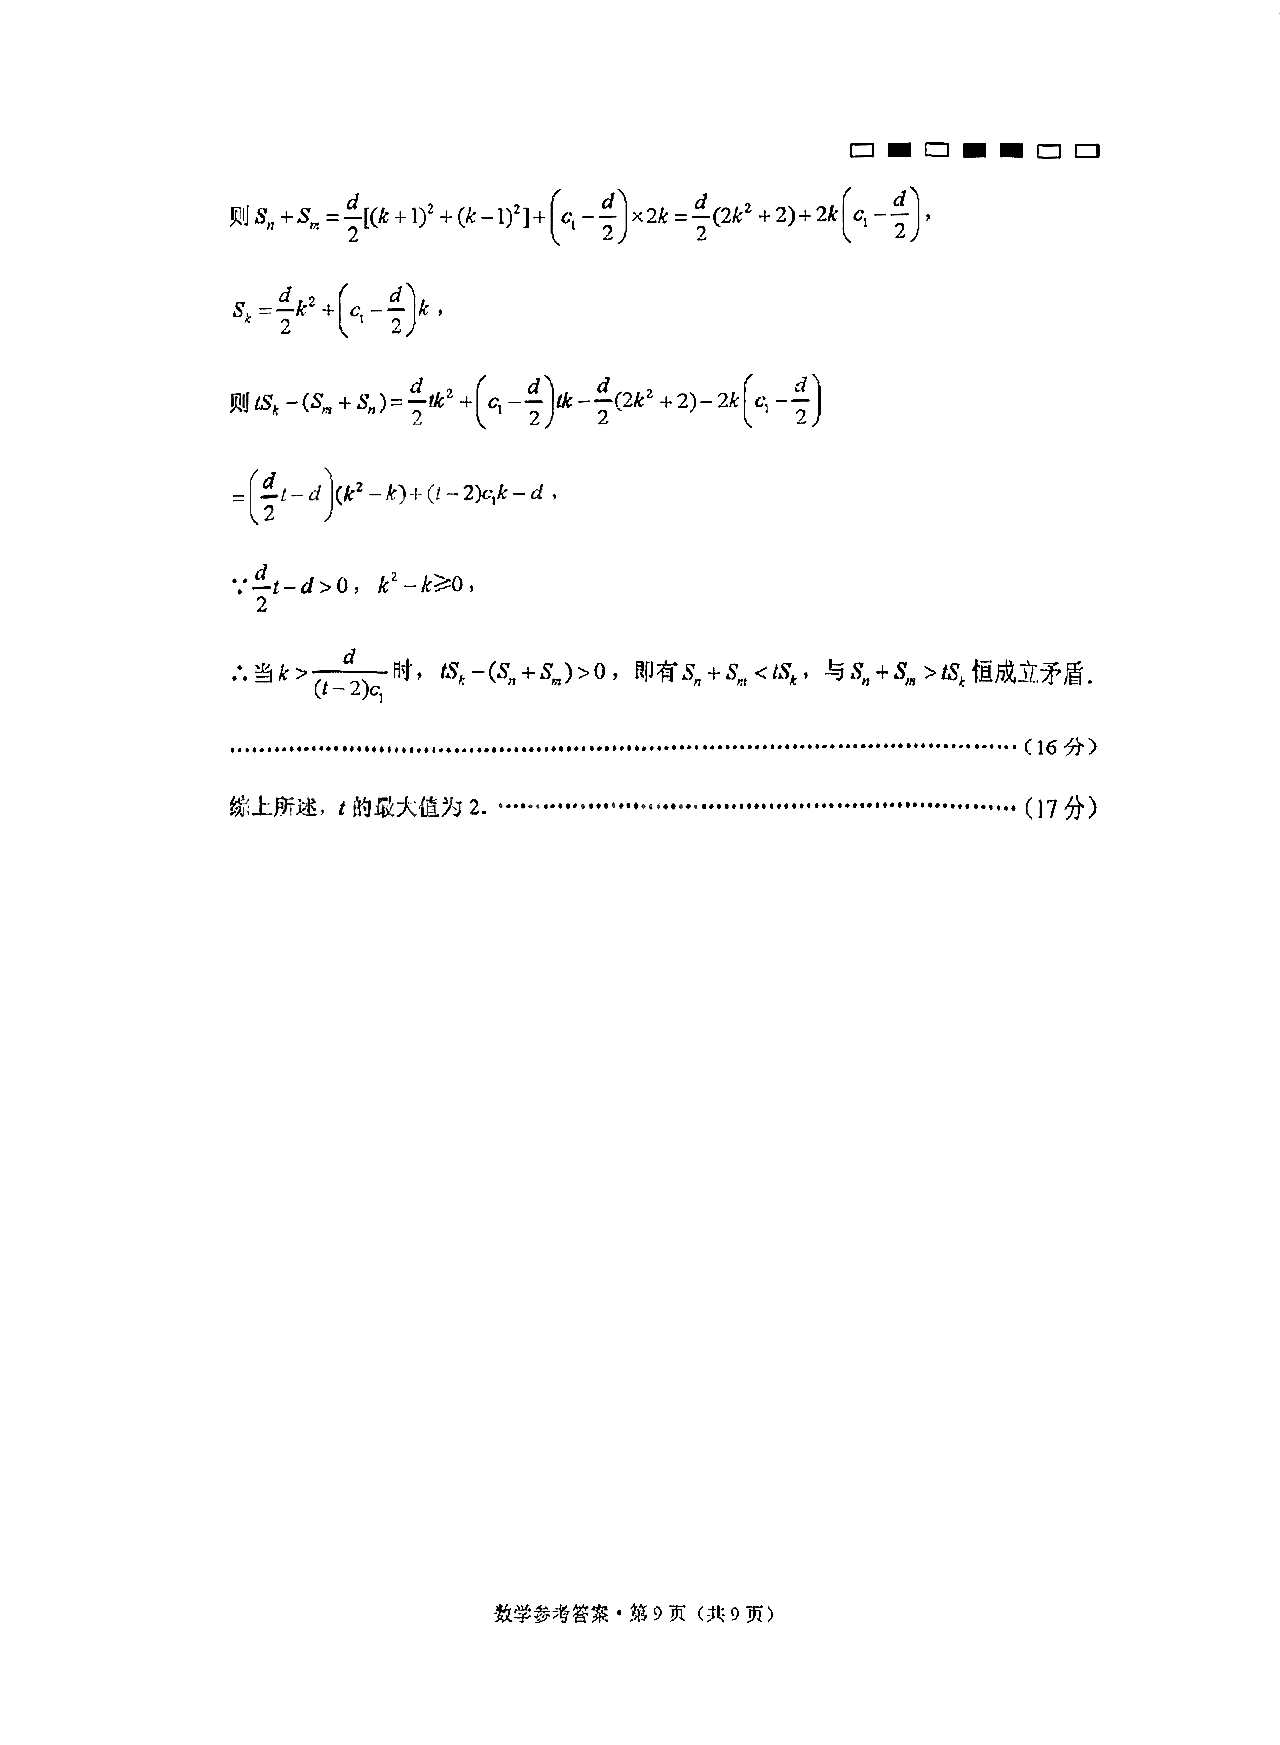 则 Sₙ + Sₘ = d/2[(k+1)² + (k−1)²] + (c₁ − d/2)×2k = d/2(2k² + 2) + 2k(c₁ − d/2),
Sₖ = d/2 k² + (c₁ − d/2)k,
则 tSₖ − (Sₘ + Sₙ) = d/2 tk² + (c₁ − d/2)tk − d/2(2k² + 2) − 2k(c₁ − d/2)
= (d/2 t − d)(k² − k) + (t − 2)c₁k − d,
∵ d/2 t − d > 0, k² − k ⩾ 0,
∴当 k > d/((t−2)c₁) 时, tSₖ − (Sₙ + Sₘ) > 0, 即有 Sₙ + Sₘ < tSₖ, 与 Sₙ + Sₘ > tSₖ 恒成立矛盾.
……………………………………………………………………………(16 分)
综上所述, t 的最大值为 2. …………………………………………………(17 分)
数学参考答案·第 9 页(共 9 页)